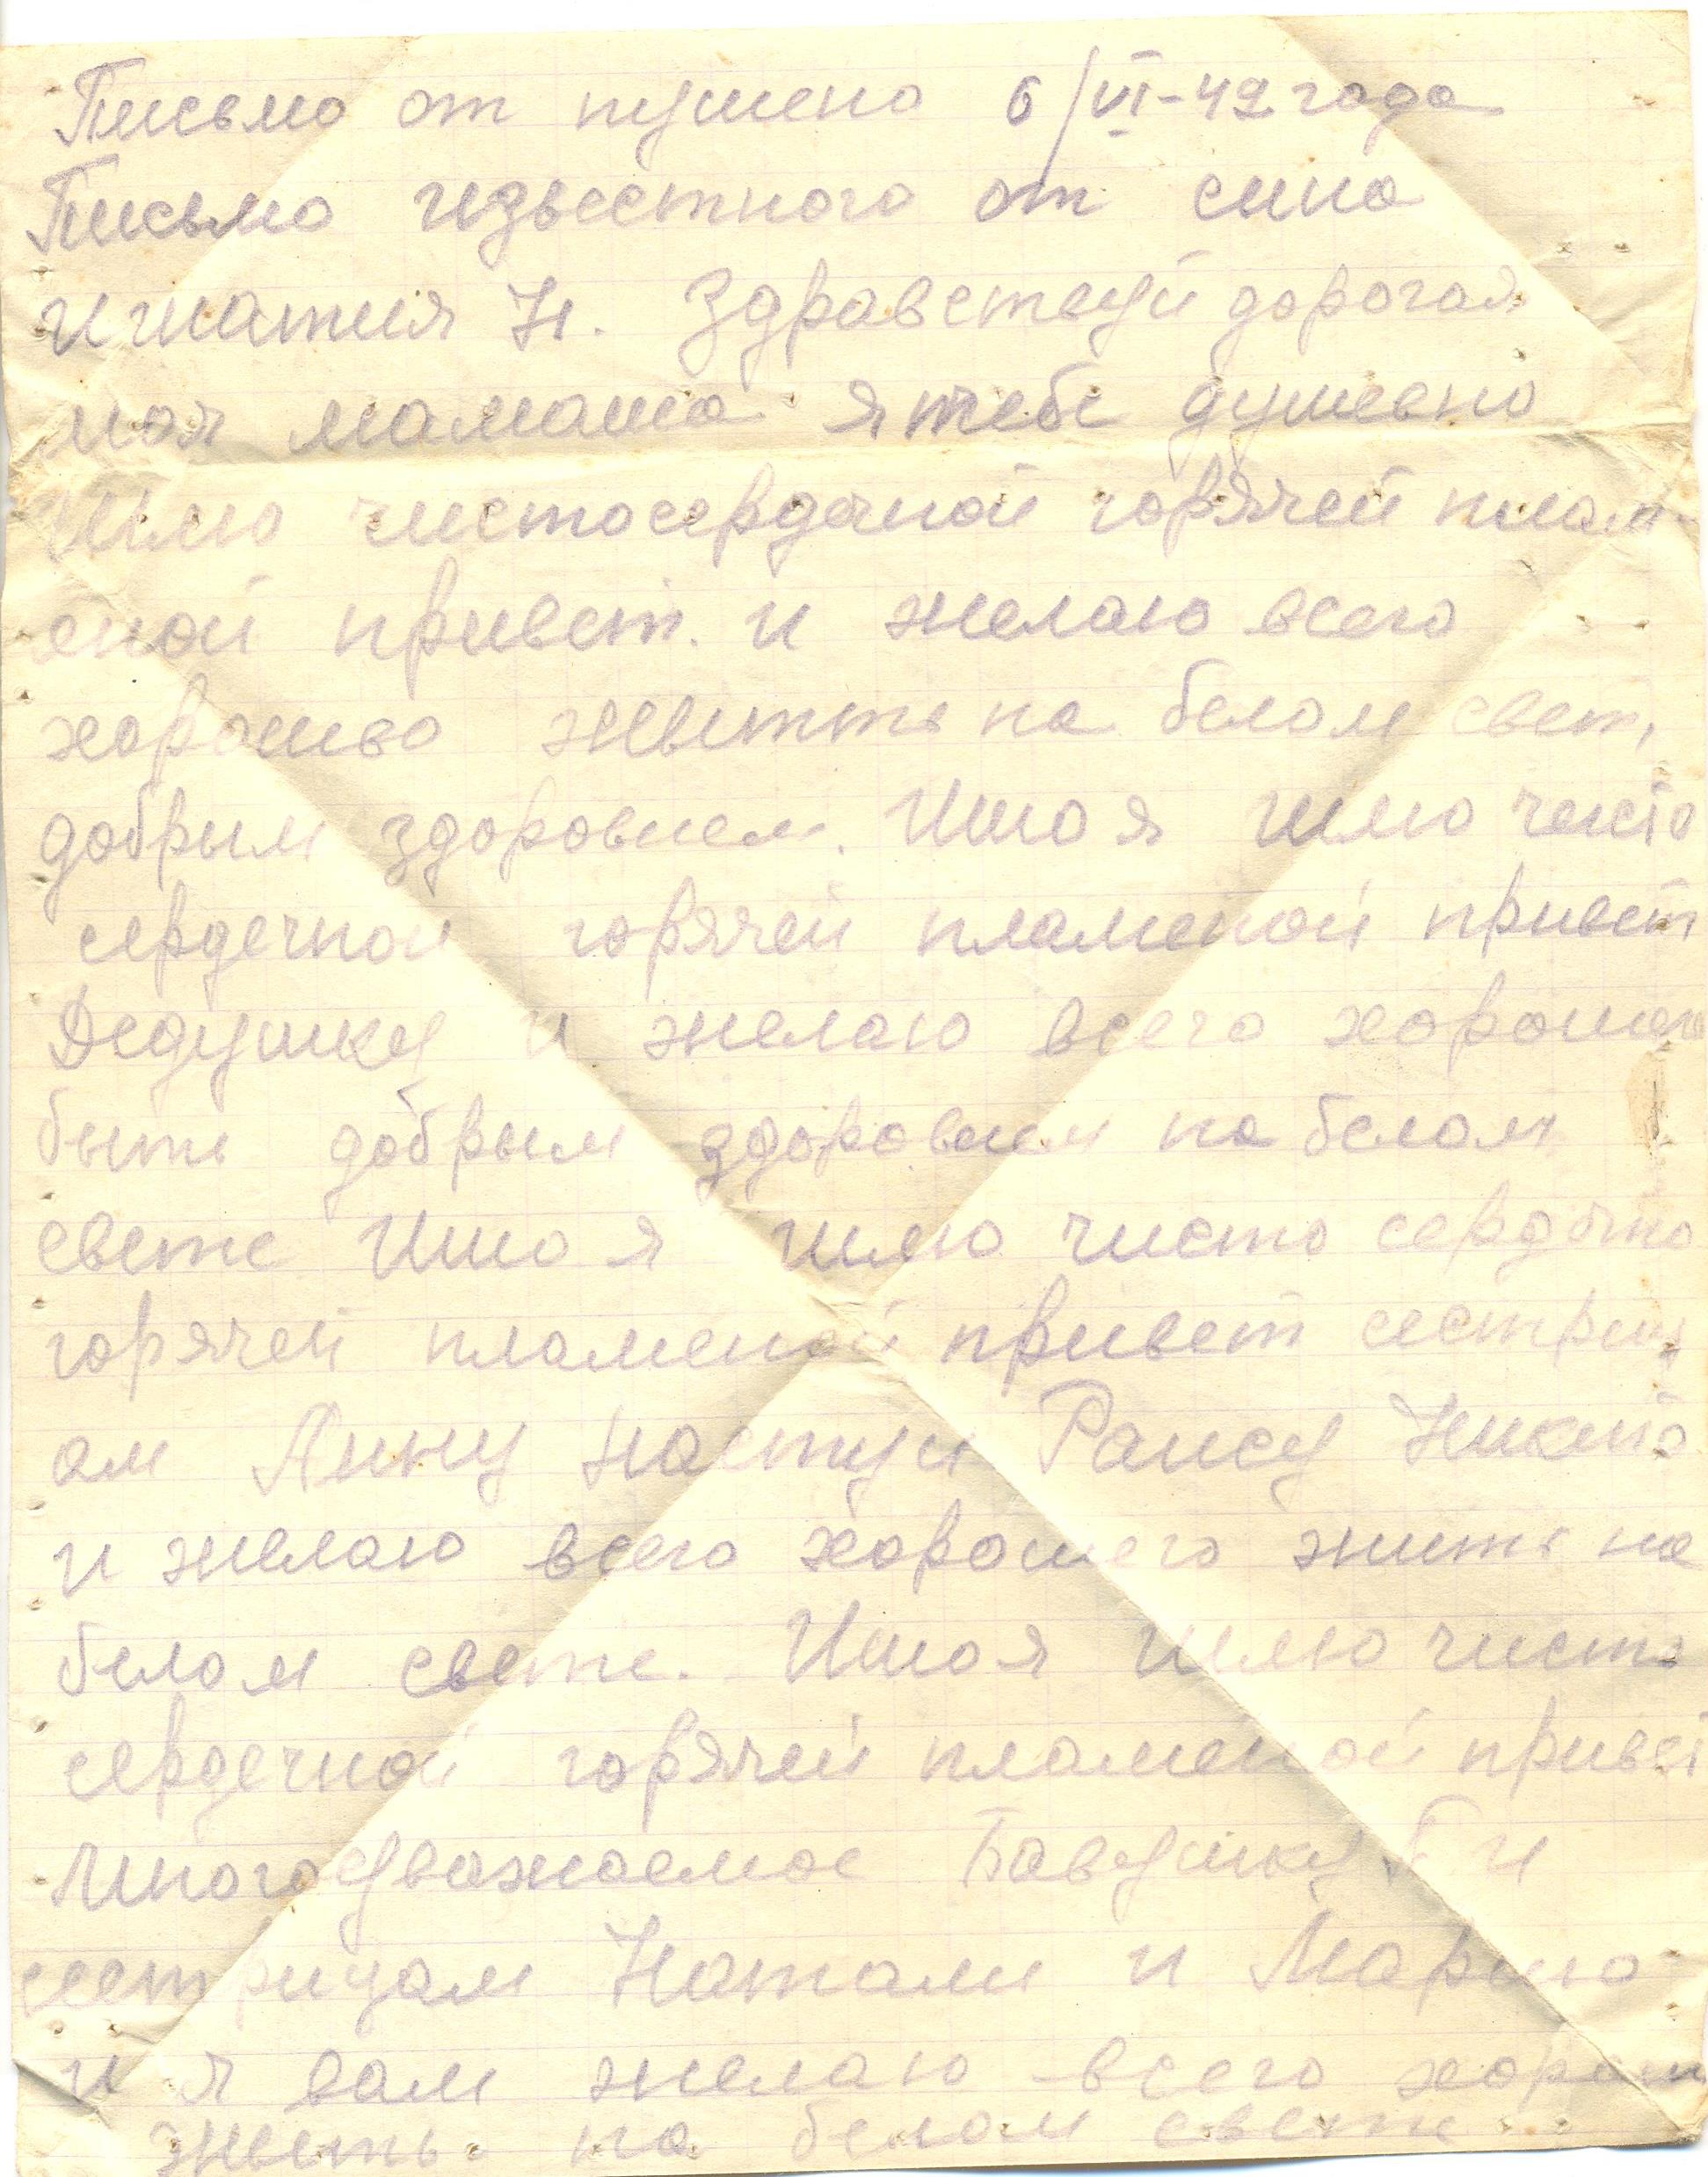 Письмо от пущено 6/VI-42 года
Письмо издвестного от сина
игнатия Н. Здравствуй дорогая
моя мамаша я тебе душевно
шлю чистосердечной горячей плам
еной привет. и желаю всего
хорошво живитть на белом свет,
добрым здоровием. Ишо я шлю чисто
сердечной горячей пламеной привет
Дедушку и желаю всего хорошего
быть добрым здоровием на белом
свете Ишо я шлю чисто сердечно
горячей пламеной привет сестриц
ам Анну Настуи Раису Никито
и желаю всего хорошего жить на
белом свете. Ишо я шлю чисто
сердечной горячей пламеной привет
многоуважаемое Бавушку и
сестрицам Натали и Марию
и я вам желаю всего хорош
жветь на белом свете.